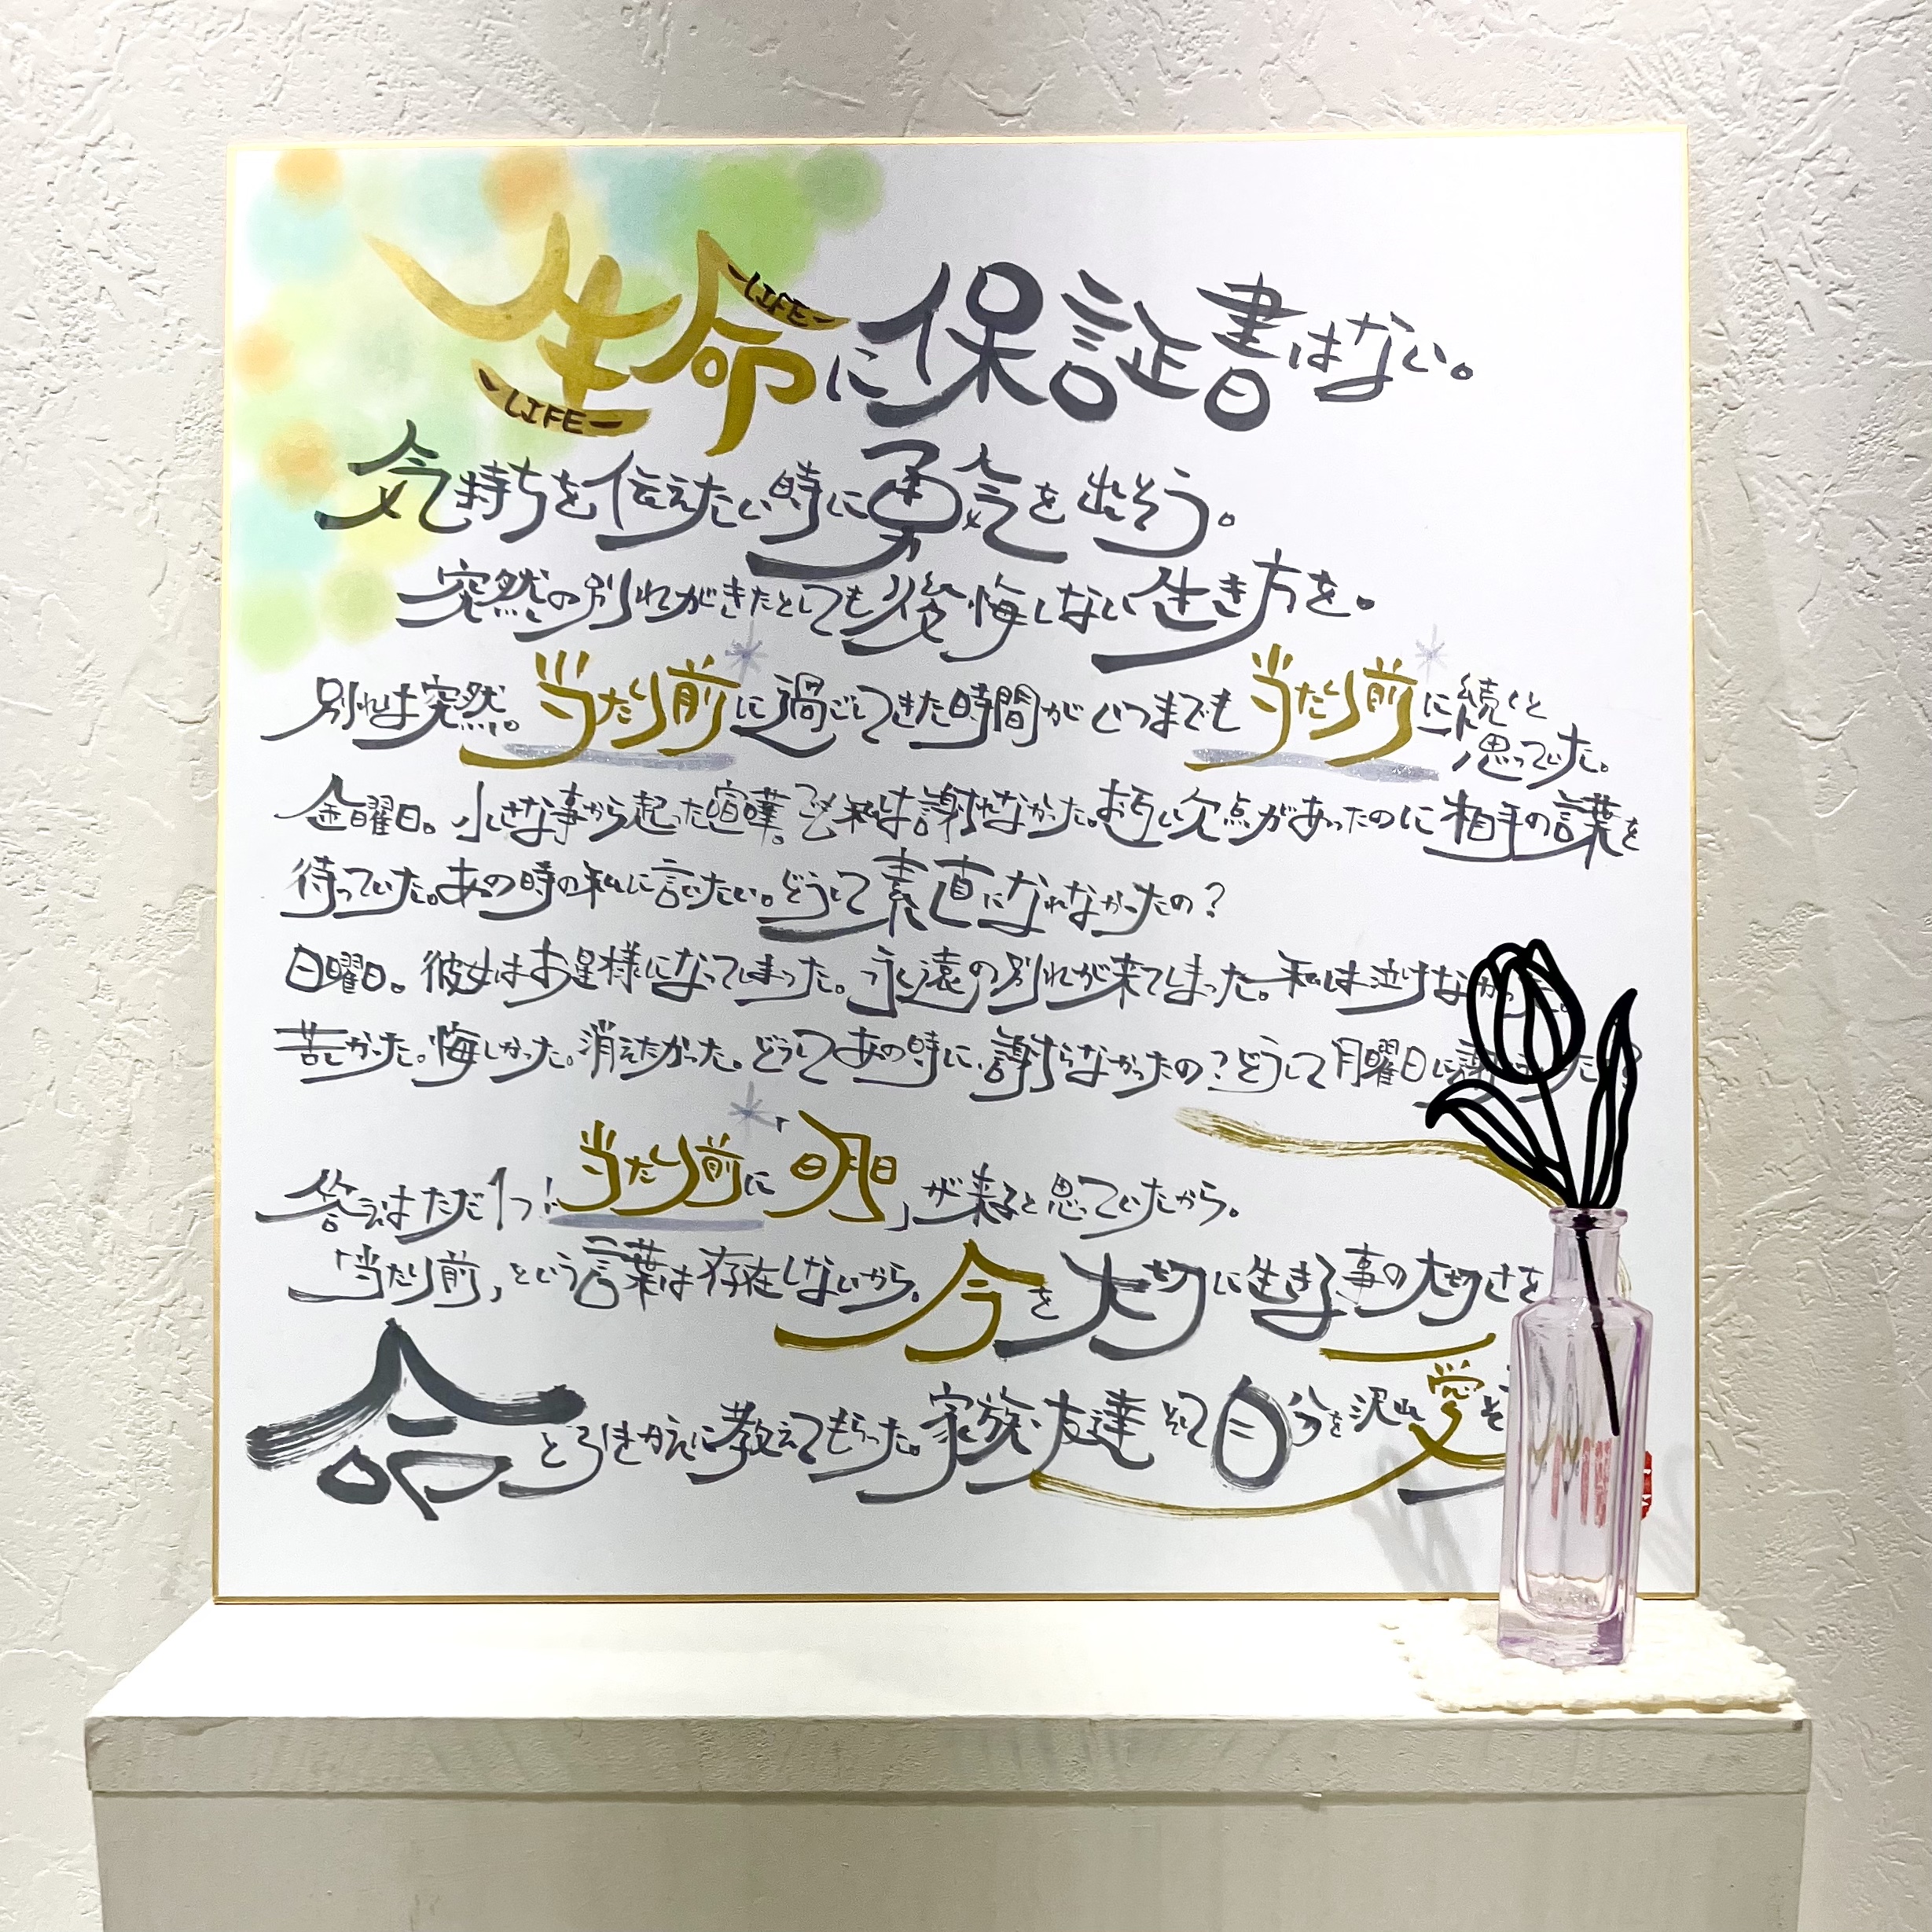 生命に保証書はない。
LIFE
LIFE
気持ちを伝えたい時に勇気を出そう。
突然の別れがきたとしても後悔しない生き方を。
別れは突然。当たり前に過ごしてきた時間がいつまでも当たり前に続くと
思っていた。
金曜日。小さな事から起った喧嘩。でも私は謝れなかった。お互い欠点があったのに相手の言葉を
待っていた。あの時の私に言いたい。どうして素直になれなかったの？
日曜日。彼女はお星様になってしまった。永遠の別れが来てしまった。私は泣けなかった。
苦しかった。悔しかった。消えたかった。どうしてあの時に謝らなかったの？どうして月曜日に謝
答えはただ1つ！当たり前に「明日」が来ると思っていたから。
「当たり前」という言葉は存在しないから。今を大切に生きる事の大切さを
命とひきかえに教えてもらった。家族・友達そして自分を沢山愛そ